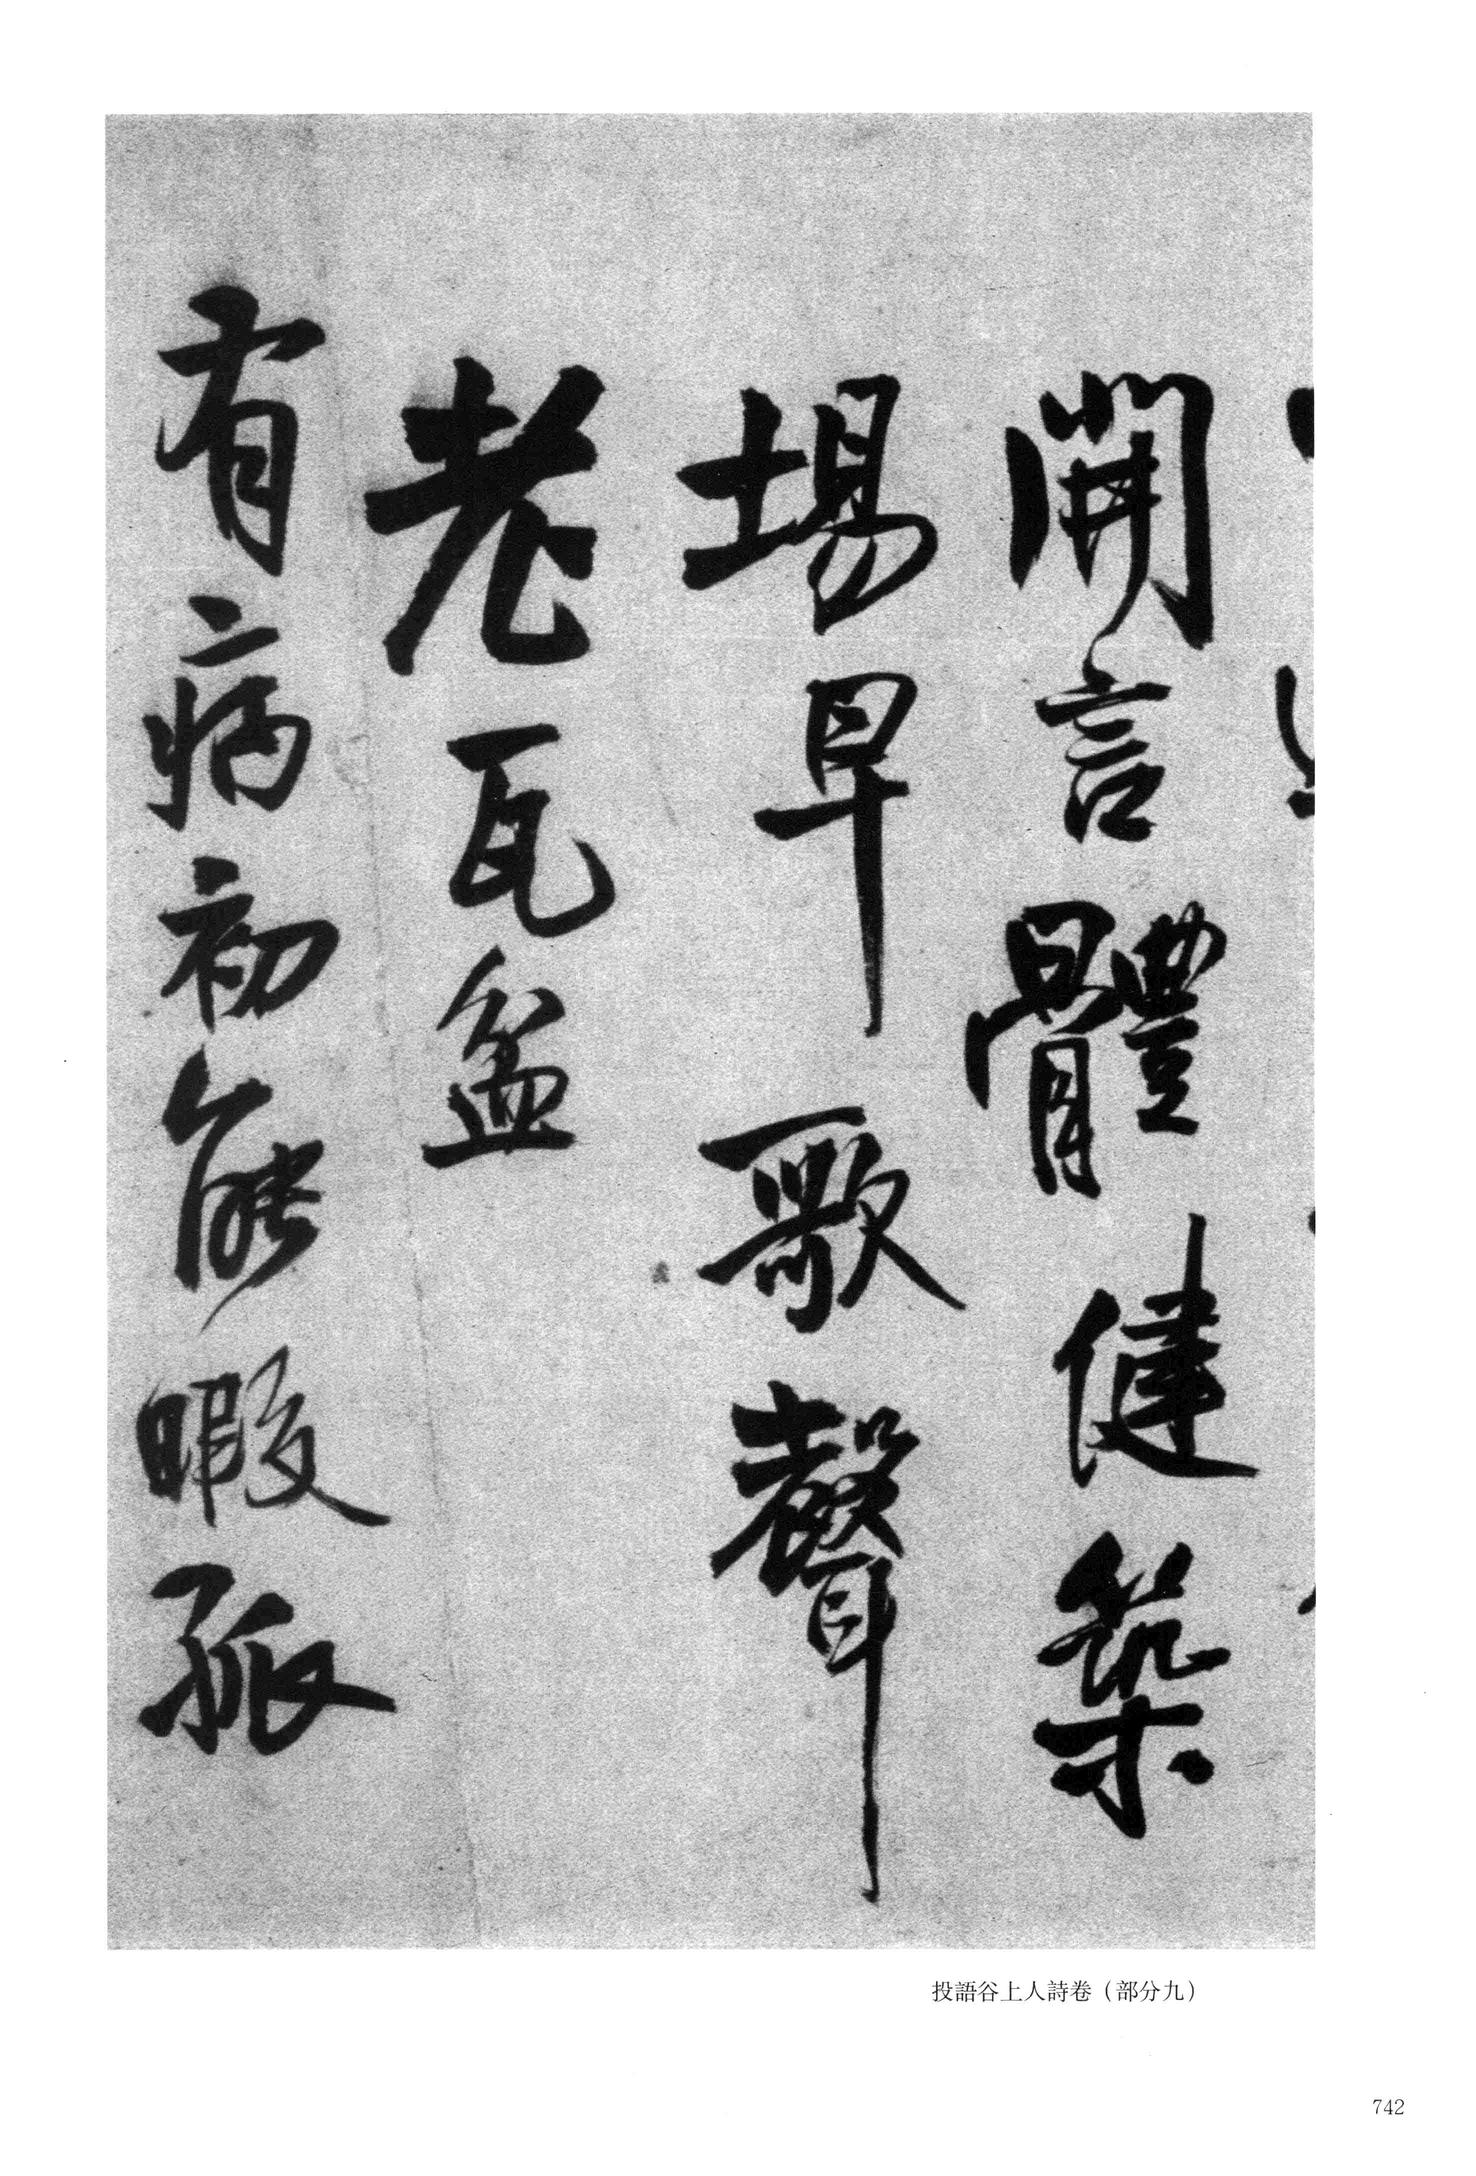 開言體健築
場早歌聲
老瓦盆
有病初能暇孤
投語谷上人詩卷（部分九）
742